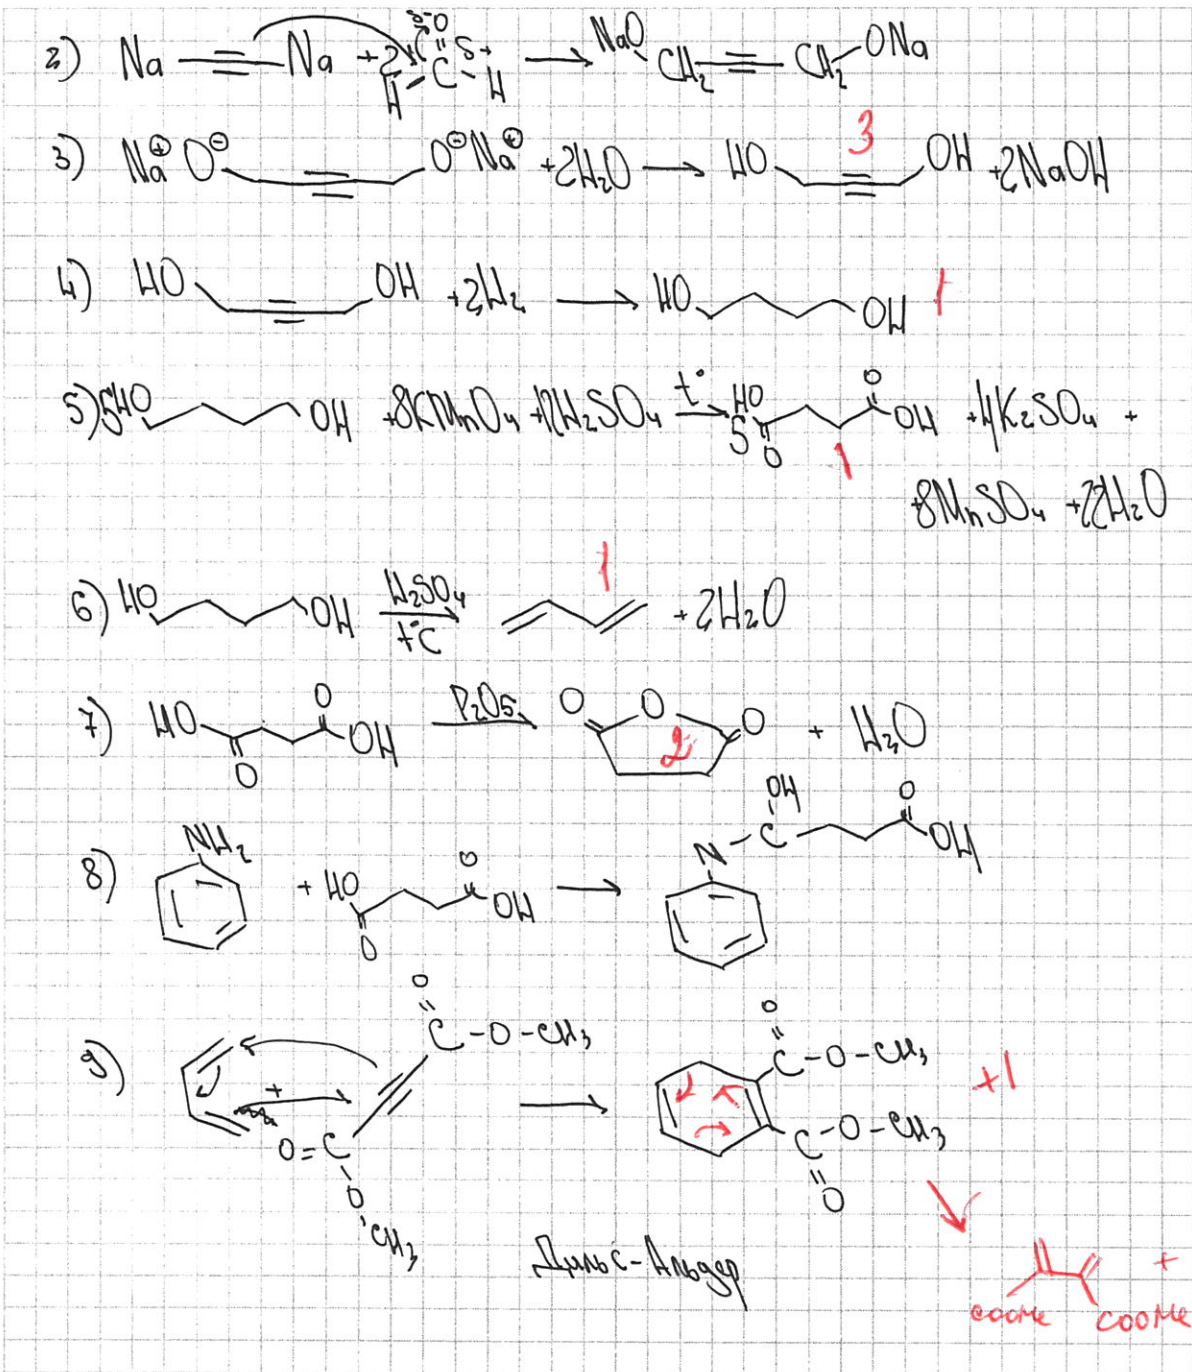 2) Na ≡ Na + H C H O δ- δ+ → NaO CH₂ ≡ CH₂ ONa
3) Na⊕ O⊖ ≡ O⊖ Na⊕ + 2H₂O → HO ≡ OH + 2NaOH
3
4) HO ≡ OH + 2H₂ → HO OH 1
5) 5 HO OH + 8KMnO₄ + 12H₂SO₄ t° → 5 HO O O OH + 4K₂SO₄ +
1
+ 8MnSO₄ + 22H₂O
6) HO OH H₂SO₄ t°C → + 2H₂O
1
7) HO O O OH P₂O₅ → O O O + H₂O
2
8) NH₂ + HO O O OH → N - C OH O OH
9) + O = C - O - CH₃ O = C O CH₃ → O = C - O - CH₃ C - O - CH₃ = O +1
Дильс-Альдер
COOMe COOMe +